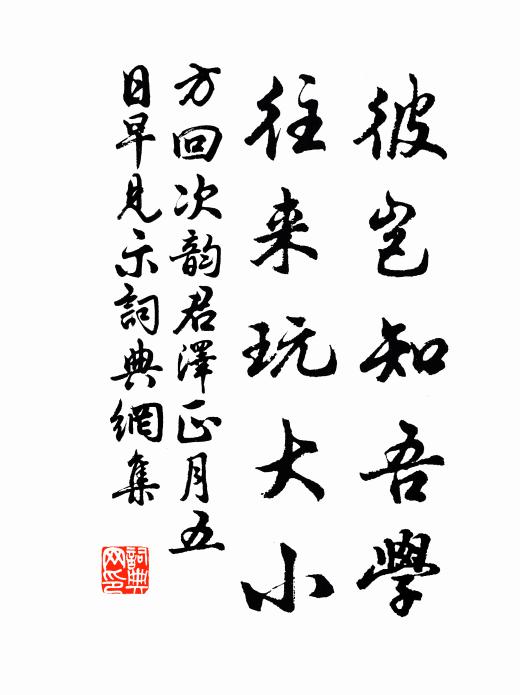 彼岂知吾學
往来玩大小
方回次韵君澤正月五
日早見示詞典網集
詞典网印